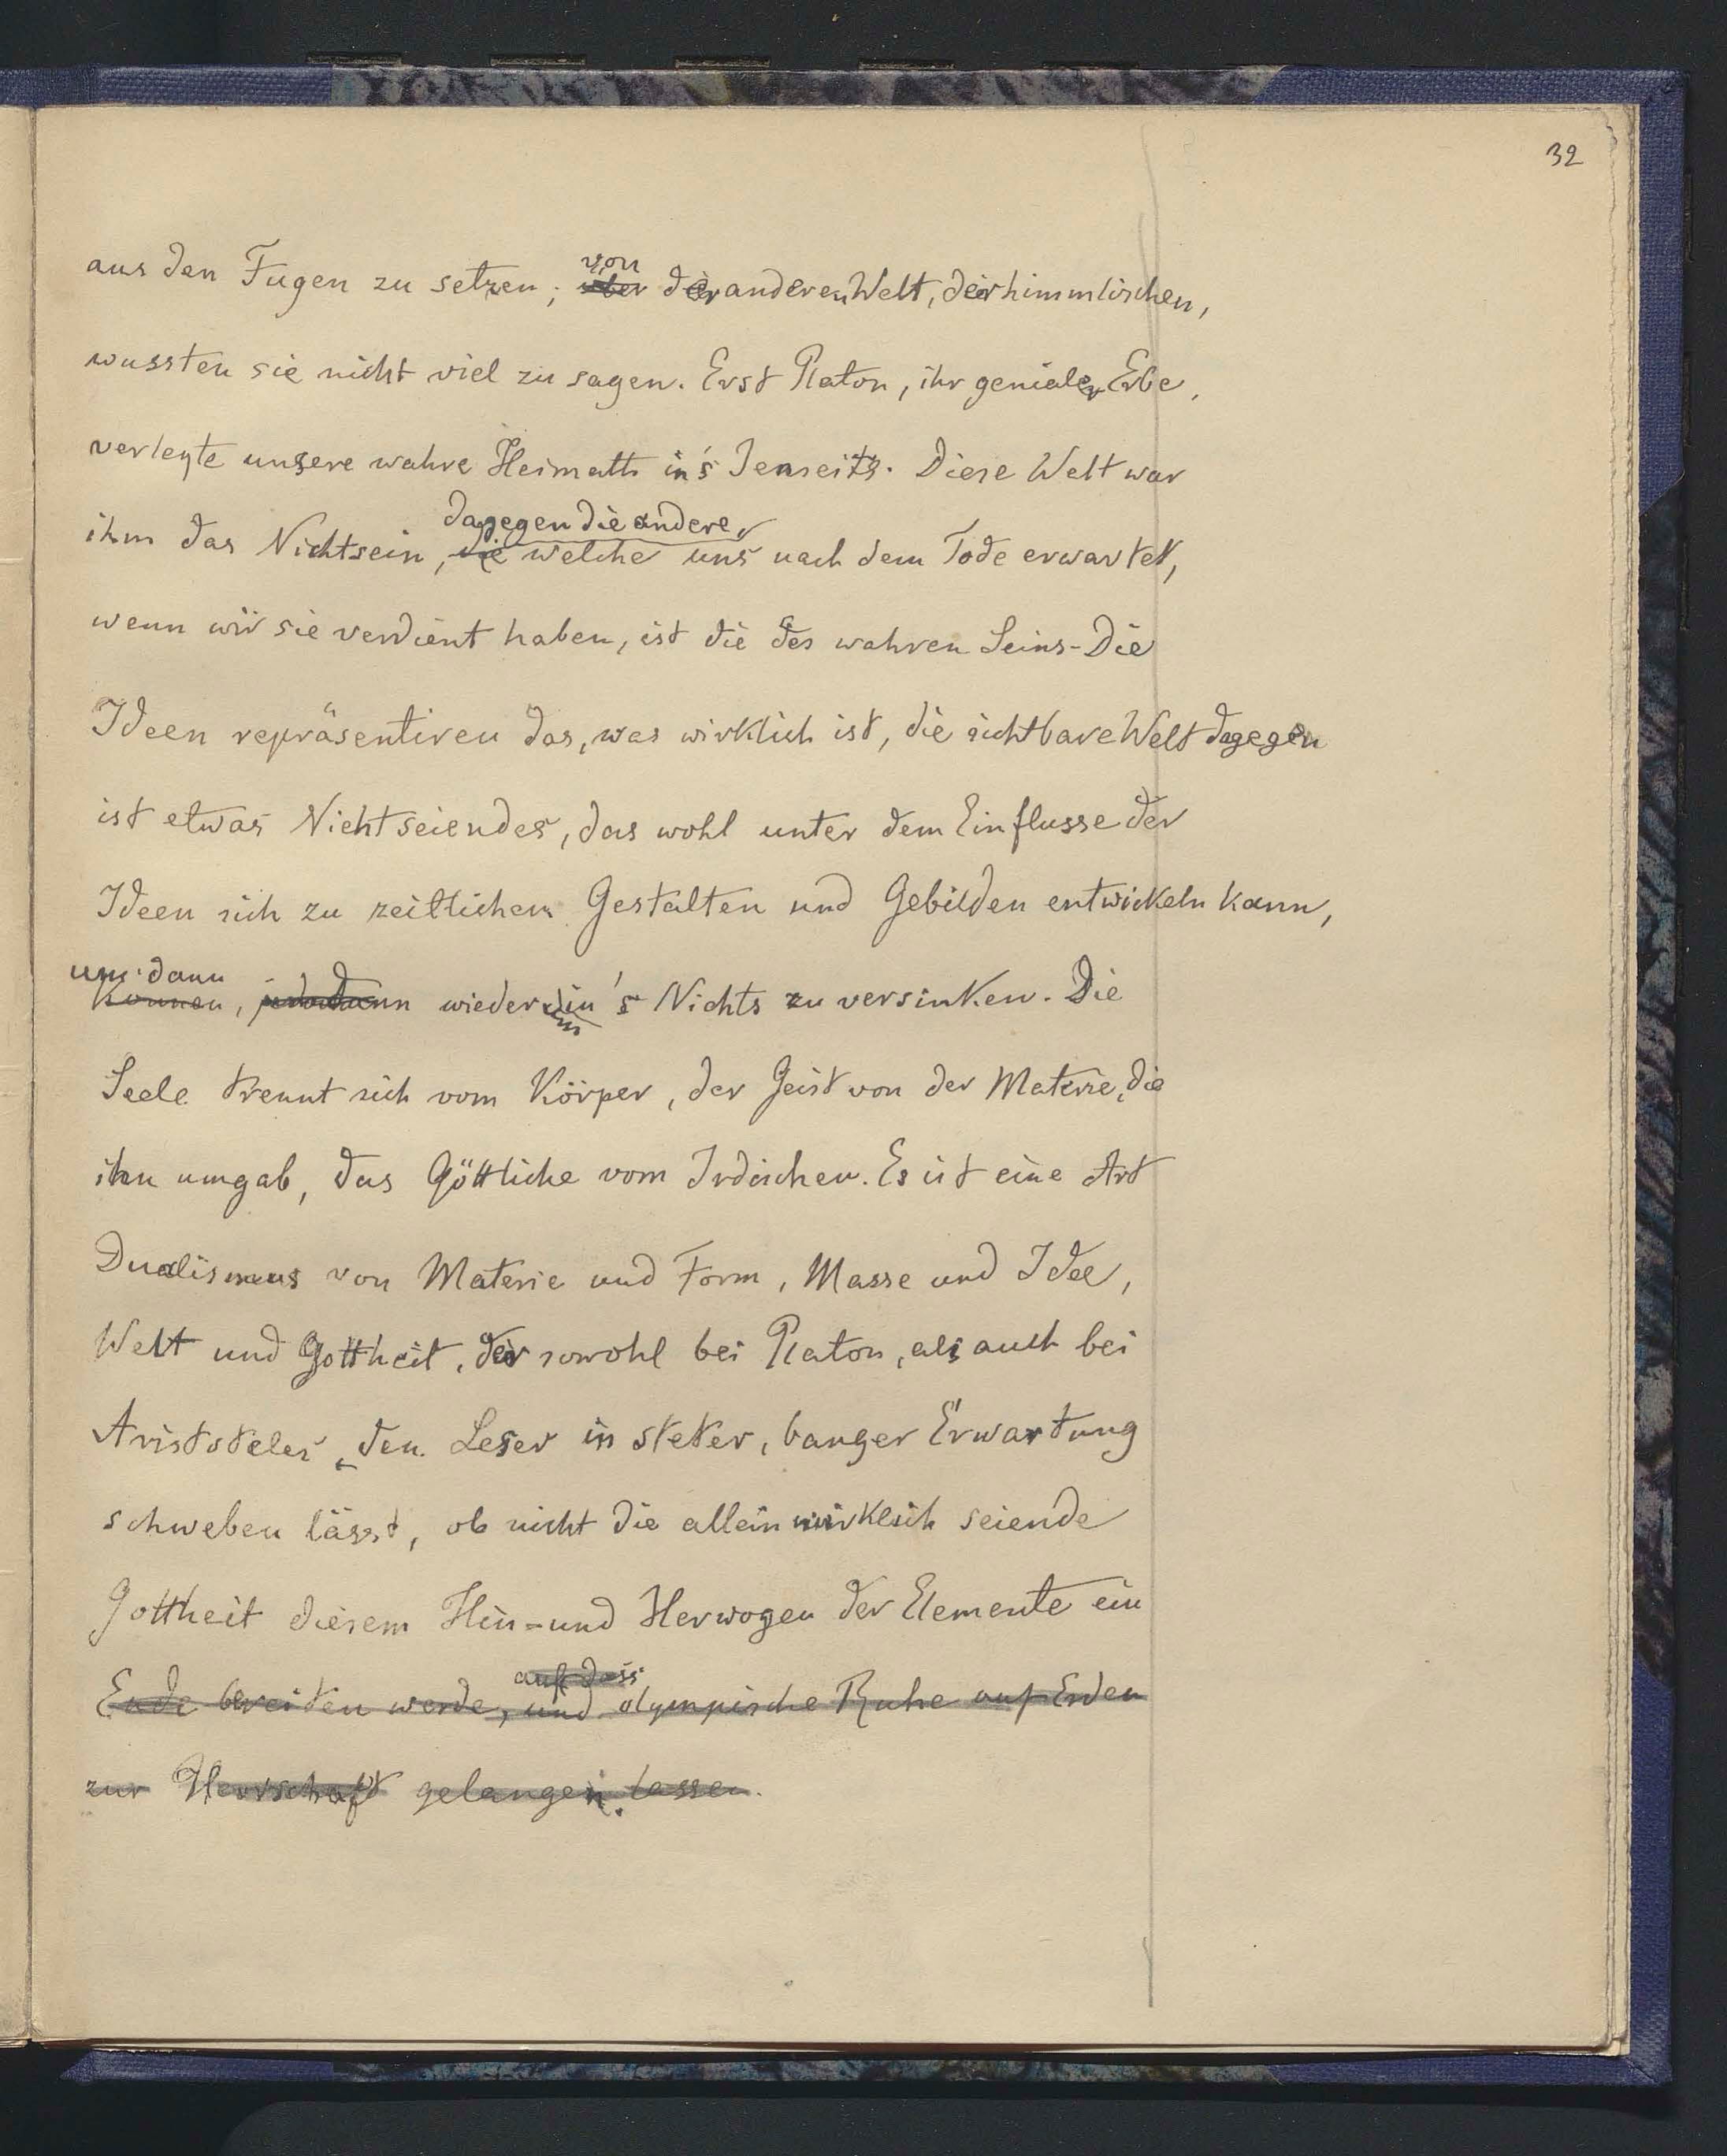 32
aus den Fugen zu setzen; von
über der anderen Welt, der himmlischen,
wussten sie nicht viel zu sagen. Erst Platon, ihr genialer Erbe,
verlegte unsere wahre Heimath in's Jenseits. Diese Welt war
dagegen die andere,
ihm das Nichtsein, die welche uns nach dem Tode erwartet,
wenn wir sie verdient haben, ist die des wahren Seins - Die
Ideen repräsentiren das, was wirklich ist, die sichtbare Welt dagegen
ist etwas Nichtseiendes, das wohl unter dem Einflusse der
Ideen sich zu zeitlichen Gestalten und Gebilden entwickeln kann,
um dann
können, wieder in's Nichts zu versinken. Die
Seele trennt sich vom Körper, der Geist von der Materie, die
ihn umgab, das Göttliche vom Irdischen. Es ist eine Art
Dualismus von Materie und Form, Masse und Idee,
Welt und Gottheit, der sowohl bei Platon, als auch bei
Aristoteles, den Leser in steter, banger Erwartung
schweben lässt, ob nicht die allein wirklich seiende
Gottheit diesem Hin- und Herwogen der Elemente ein
auf dass
Ende bereiten werde, und olympische Ruhe auf Erden
zur Herrschaft gelangen lassen.